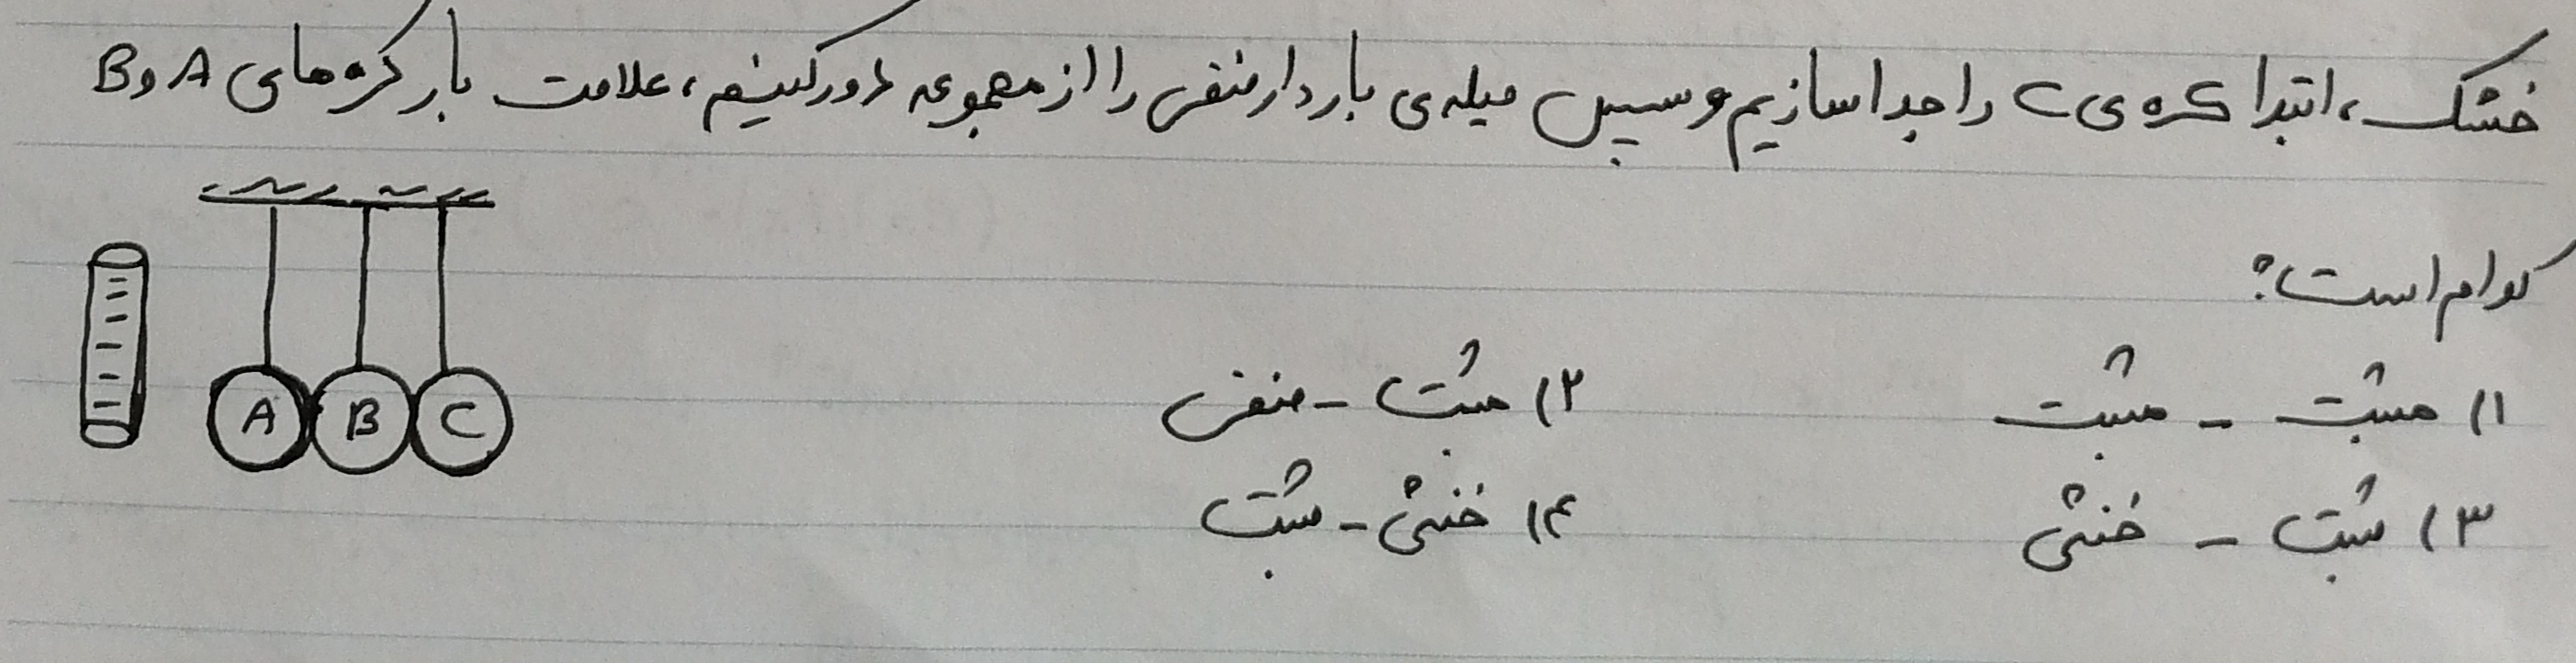 خشک، ابتدا کره ی C را جدا سازیم و سپس میله ی باردار منفی را از مجموعه دور کنیم، علامت بار کره های A و B
کدام است؟
۱) مثبت - مثبت ۲) مثبت - منفی
۳) مثبت - خنثی ۴) خنثی - مثبت
A B C